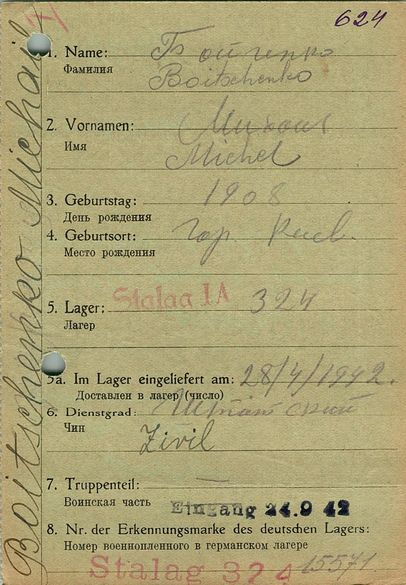 624
Boitschenko Michail
1. Name: Бойченко
Фамилия Boitschenko
2. Vornamen: Михаил
Имя Michel
3. Geburtstag: 1908
День рождения
4. Geburtsort: гор. Киев.
Место рождения
5. Lager: Stalag IA 324
Лагер
5a. Im Lager eingeliefert am: 28/4/1942.
Доставлен в лагер (число)
6. Dienstgrad:
Чин Zivil
7. Truppenteil: —
Воинская часть Eingang 24.9 42
8. Nr. der Erkennungsmarke des deutschen Lagers:
Номер военнопленного в германском лагере
Stalag 324 15571